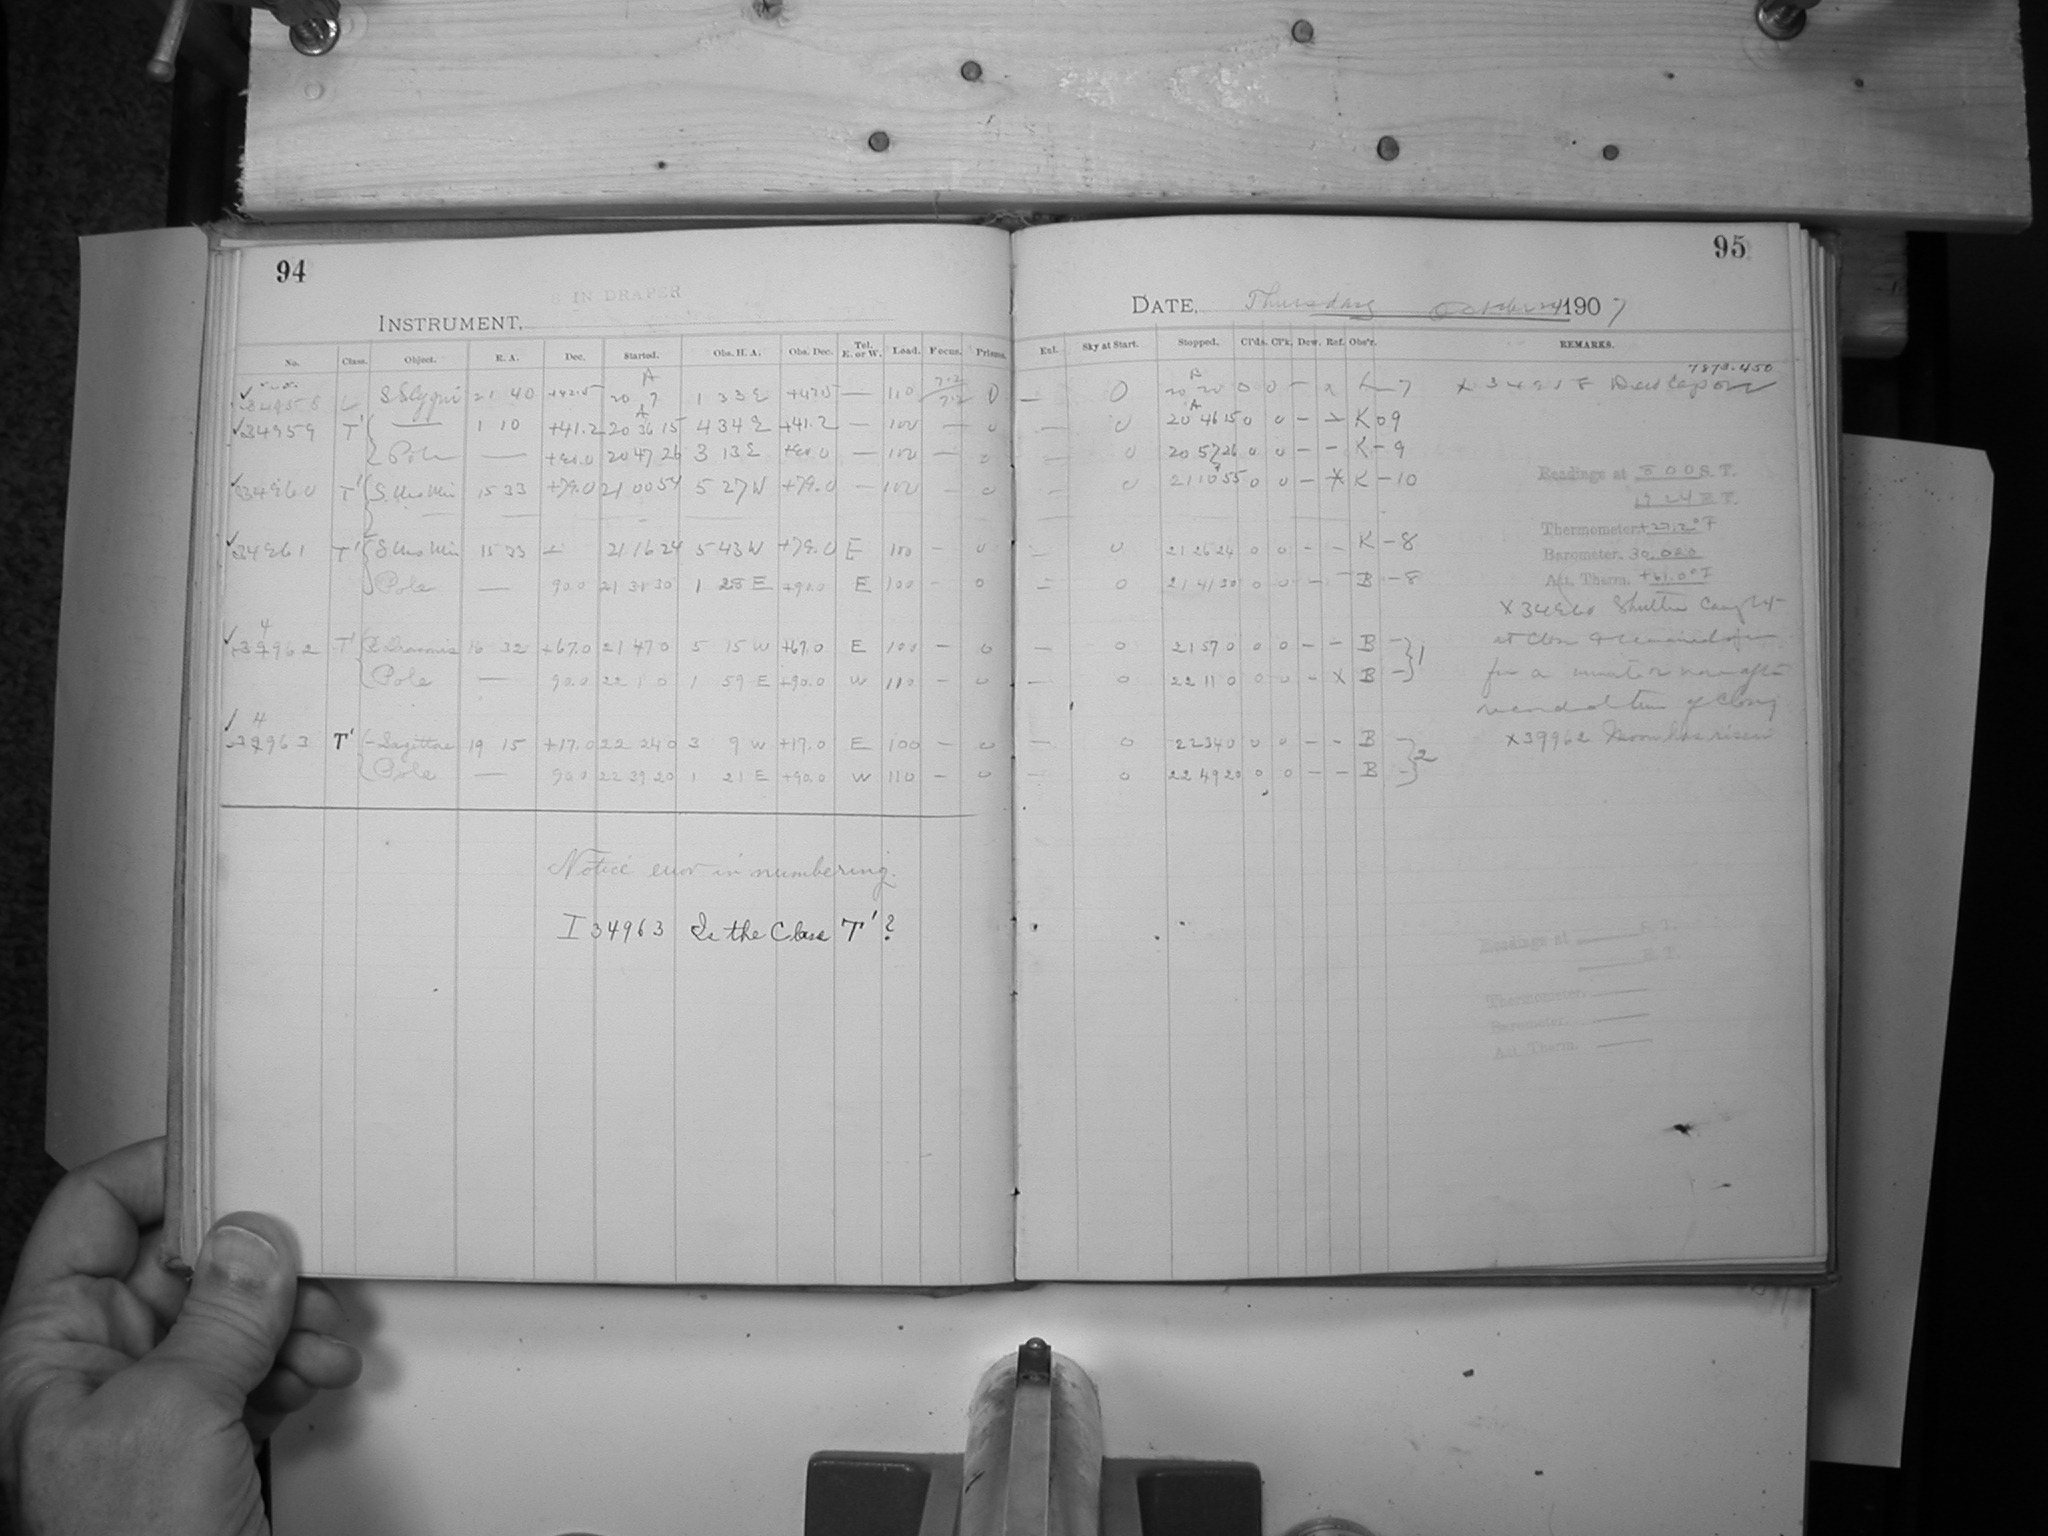 94
8 IN DRAPER
INSTRUMENT,
No. Class. Object. R. A. Dec. Started. Obs. H. A. Obs. Dec. Tel. E. or W. Lead. Focus. Prisms.
34958 L SS Cygni 21 40 +42.5 20 7 1 33 E — 110 0
34959 T' — 1 10 +41.2 20 36 15 4 34 E +41.2 — 100 — 0
Pole — +90.0 20 47 26 3 13 E +90.0 — 100 — 0
34960 T' S. Urs Min 15 33 +79.0 21 00 54 5 27 W +79.0 — 100 — 0
34961 T' S Urs Min 15 33 21 16 24 5 43 W +79.0 E 100 — 0
Pole — 90.0 21 31 30 1 28 E +90.0 E 100 — 0
4
39962 T' Draconis 16 32 +67.0 21 47 0 5 15 W +67.0 E 100 — 0
Pole — 90.0 22 1 0 1 59 E +90.0 W 110 — 0
4
39963 T' — Sagittae 19 15 +17.0 22 24 0 3 9 W +17.0 E 100 — 0
Pole — 90.0 22 39 20 1 21 E +90.0 W 110 — 0
Notice error in numbering.
I 34963 Is the Class T' ?
95
DATE, Thursday October 24 1907
Exl. Sky at Start. Stopped. Cl'ds. Cl'k. Dew. Ref. Obs'r. REMARKS.
7873.450
— 0 20 20 0 0 — x L—7 x 34958 Dew Cap on
— 0 20 46 15 0 0 — K 09
— 0 20 57 26 0 0 — — K—9
— 0 21 10 55 0 0 — X K—10
— 0 21 26 24 0 0 — — K—8
— 0 21 41 30 0 0 — — B—8
— 0 21 57 0 0 0 — — B — 1
— 0 22 11 0 0 0 — X B —
— 0 22 34 0 0 0 — — B — 2
— 0 22 49 20 0 0 — — B —
Readings at 8 00 S. T.
19 24 E. T.
Thermometer. +27.2° F
Barometer. 30.020
Att. Therm. +61.0° F
X 34960 Shutter caught
at close & remained open
for a minute or more after
recorded time of closing
X 39962 Moon has risen
Readings at S. T.
E. T.
Thermometer.
Barometer.
Att. Therm.